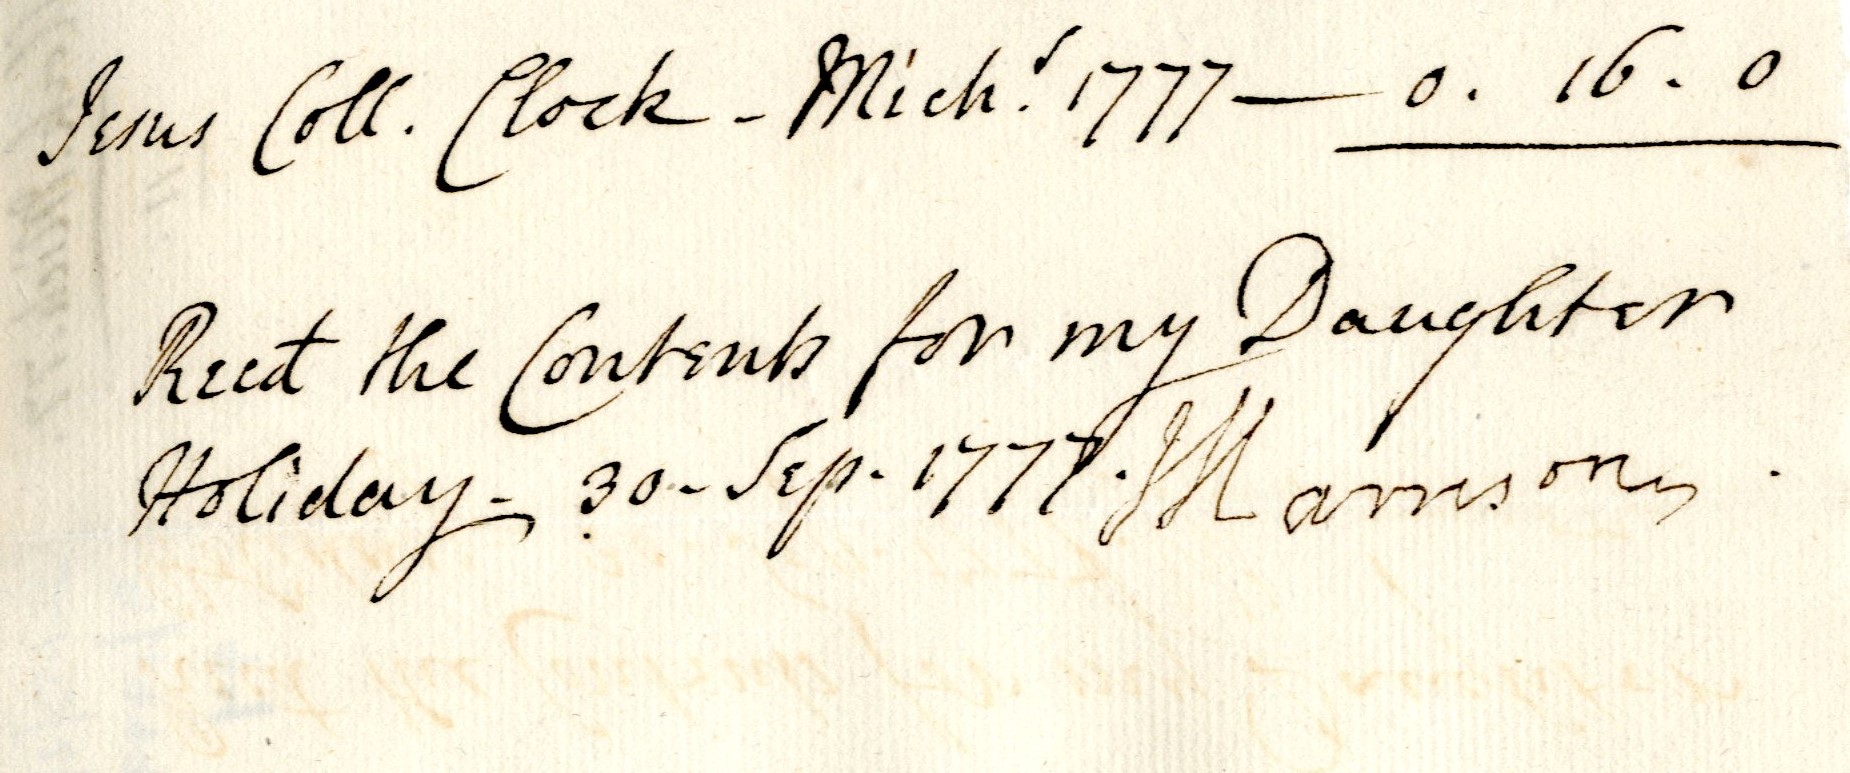 Jesus Coll. Clock - Mich.s 1777 — 0. 16. 0
Recd the Contents for my Daughter
Holiday - 30 - Sep. 1777.